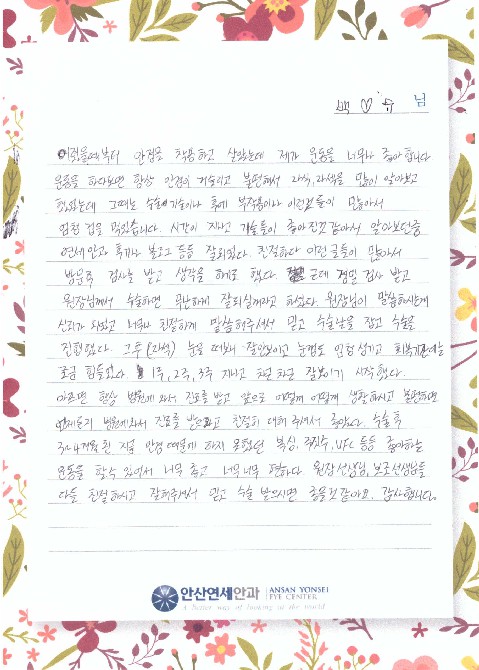 백♡유 님
어렸을때부터 안경을 착용하고 살았는데 제가 운동을 너무나 좋아합니다
운동을 하다보면 항상 안경이 거슬리고 불편해서 라식, 라섹을 많이 알아보고
했었는데 그때는 수술의 기술이나 후에 부작용이나 이런것들이 많아서
엄청 겁을 먹었습니다. 시간이 지나고 기술들이 좋아진것같아서 알아보던중
연세안과 후기나 블로그 등등 잘되있다. 친절하다 이런글들이 많아서
방문후 검사를 받고 생각을 해보려 했다. 근데 정밀 검사 받고
원장님께서 수술하면 무난하게 잘되실꺼라고 하셨다. 원장님이 말씀하시는게
신뢰가 되었고 너무나 친절하게 말씀해주셔서 믿고 수술날을 잡고 수술을
진행했다. 그후 (라섹) 눈을 떠보니 잘안보이고 눈꺼풀도 엄청 생기고 회복기간에는
조금 힘들었다 1주, 2주, 3주 지나고 차츰 차츰 잘보이기 시작했다.
아프면 항상 병원에 와서 진료를 받고 앞으로 어떻게 어떻게 생활하시고 불편하면
언제든지 병원에와서 진료를 받으라고 친절히 대해 주셔서 좋았다. 수술 후
3~4개월 된 지금 안경 때문에 하지 못했던 복싱, 주짓수, UFC 등등 좋아하는
운동을 할수 있어서 너무 좋고 너무너무 편하다 원장선생님, 보조선생님들
다들 친절하시고 잘해주셔서 믿고 수술 받으시면 좋을것같아요. 감사합니다.
안산연세안과 ANSAN YONSEI
EYE CENTER
A better way of looking at the world